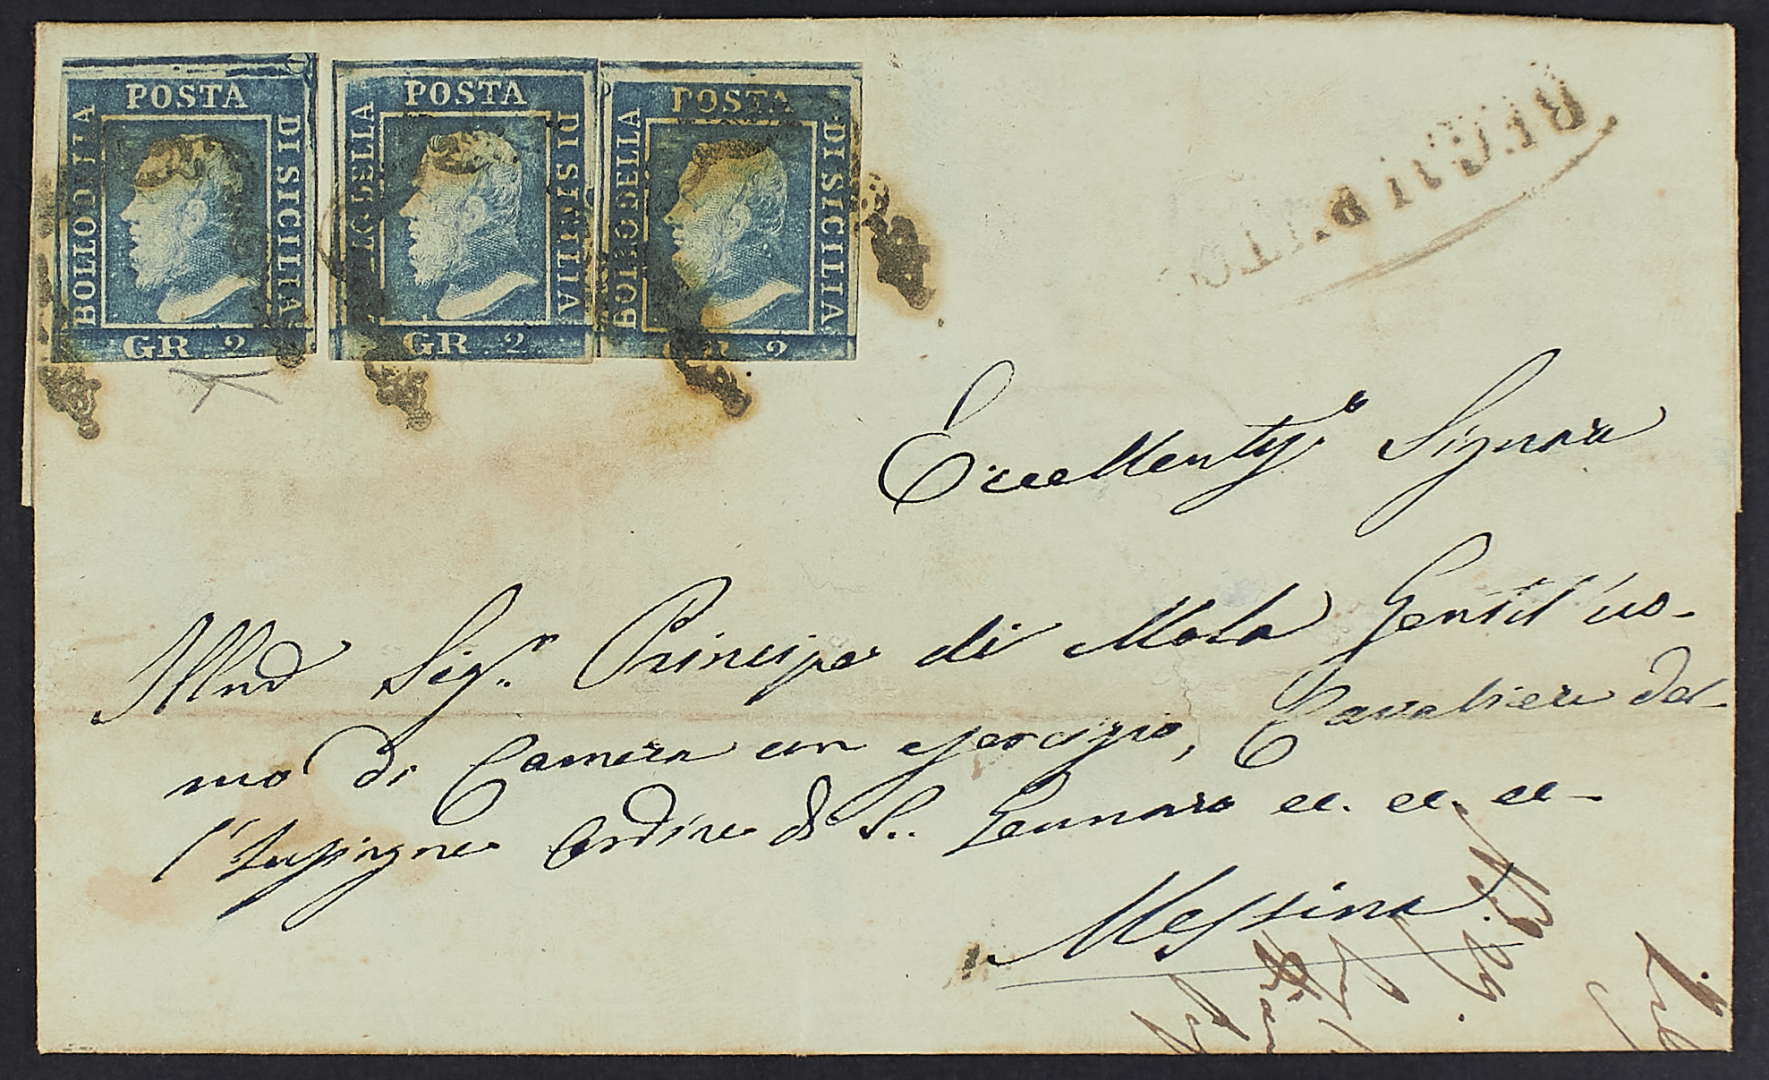 POSTA
BOLLO DELLA
DI SICILIA
GR. 2
POSTA
BOLLO DELLA
DI SICILIA
GR. 2
POSTA
BOLLO DELLA
DI SICILIA
GR. 2
Eccellentissº Signore
All Sigr. Principe di Mola Gentil'uo-
mo di Camera con esercizio, Cavaliere del-
l'Insigne Ordine di S. Gennaro ec. ec. ec-
Messina